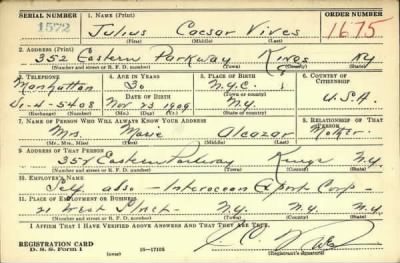 SERIAL NUMBER 1. NAME (Print) ORDER NUMBER
1572 Julius Caesar Vives 1675
(First) (Middle) (Last)
2. ADDRESS (Print)
352 Eastern Parkway Kings NY
(Number and street or R. F. D. number) (Town) (County) (State)
3. TELEPHONE 4. AGE IN YEARS 5. PLACE OF BIRTH 6. COUNTRY OF CITIZENSHIP
Manhattan 30 N.Y.C.
DATE OF BIRTH (Town or county)
4-5408 Nov 23 1909 N.Y. U.S.A.
(Exchange) (Number) (Mo.) (Day) (Yr.) (State or country)
7. NAME OF PERSON WHO WILL ALWAYS KNOW YOUR ADDRESS 8. RELATIONSHIP OF THAT PERSON
Mrs. Marie Alcazar Mother.
(Mr., Mrs., Miss) (First) (Middle) (Last)
9. ADDRESS OF THAT PERSON
352 Eastern Parkway Kings N.Y.
(Number and street or R. F. D. number) (Town) (County) (State)
10. EMPLOYER'S NAME
Self also - Interocean Export Corp -
11. PLACE OF EMPLOYMENT OR BUSINESS
21 West Street - N.Y. N.Y. N.Y.
(Number and street or R. F. D. number) (Town) (County) (State)
I AFFIRM THAT I HAVE VERIFIED ABOVE ANSWERS AND THAT THEY ARE TRUE.
REGISTRATION CARD
D. S. S. Form 1 16-17105 (Registrant's signature)